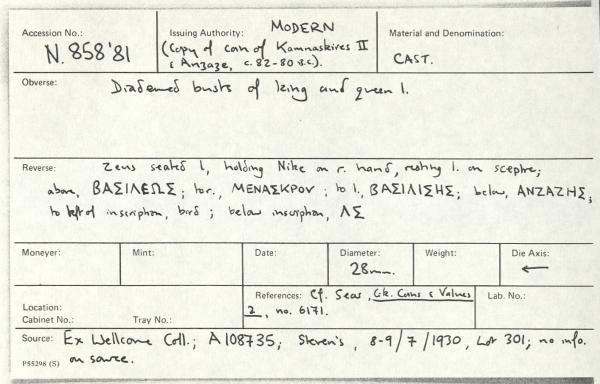 Accession No.:
N. 858'81
Issuing Authority: MODERN
(Copy of coin of Kamnaskires II
& Anzaze, c. 82-80 B.C.).
Material and Denomination:
CAST.
Obverse: Diademed busts of king and queen l.
Reverse: Zeus seated l, holding Nike on r. hand, resting l. on sceptre;
above, ΒΑΣΙΛΕΩΣ; to r., ΜΕΝΑΣΚΡΟΥ; to l., ΒΑΣΙΛΙΣΗΣ; below, ΑΝΖΑΖΗΣ;
to left of inscription, bird; below inscription, ΛΣ
Moneyer:
Mint:
Date:
Diameter:
28mm.
Weight:
Die Axis:
←
Location:
Cabinet No.:
Tray No.:
References: Cf. Sear, Gk. Coins & Values
2, no. 6171.
Lab. No.:
Source: Ex Wellcome Coll.; A108735; Steven's, 8-9/7/1930, Lot 301; no info.
on source.
P55298 (S)